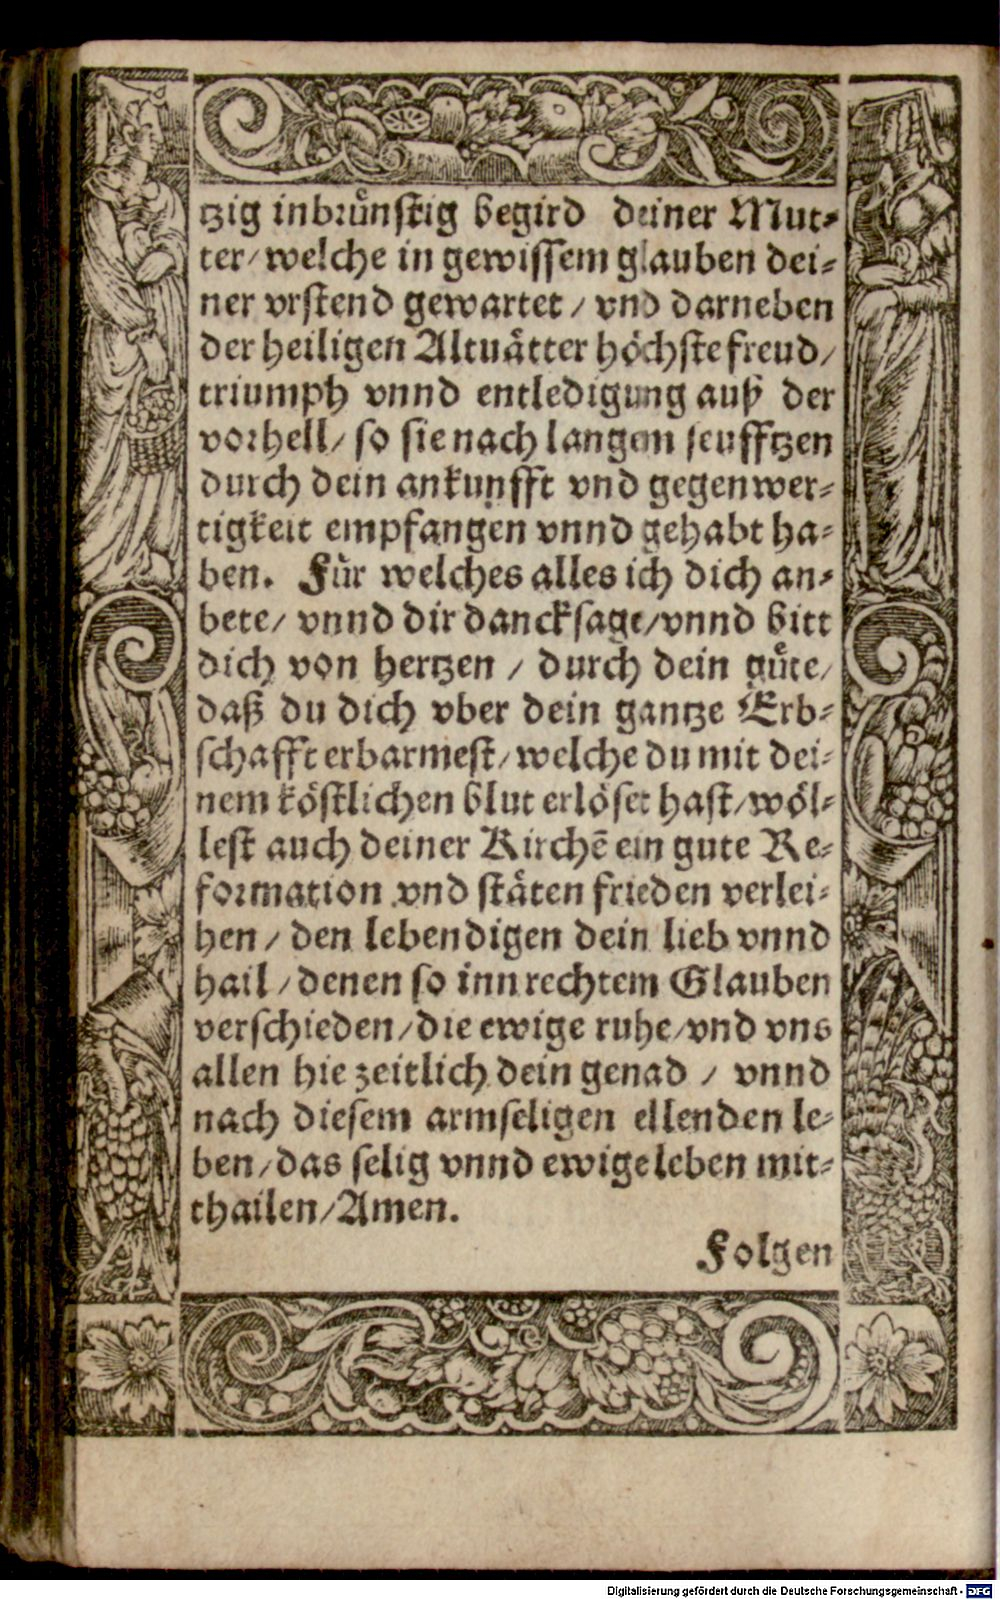 tzig inbruͤnstig begird deiner Mut⸗
ter/ welche in gewissem glauben dei⸗
ner vrstend gewartet / vnd darneben
der heiligen Altuaͤtter hoͤchste freud/
triumph vnnd entledigung auß der
vorhell/ so sie nach langem seufftzen
durch dein ankunfft vnd gegenwer⸗
tigkeit empfangen vnnd gehabt ha⸗
ben. Fuͤr welches alles ich dich an⸗
bete/ vnnd dir dancksage/ vnnd bitt
dich von hertzen / durch dein guͤte/
daß du dich vber dein gantze Erb⸗
schafft erbarmest/ welche du mit dei⸗
nem koͤstlichen blut erloͤset hast/ woͤl⸗
lest auch deiner Kirchẽ ein gute Re⸗
formation vnd staͤten frieden verlei⸗
hen / den lebendigen dein lieb vnnd
hail / denen so inn rechtem Glauben
verschieden/ die ewige ruhe/ vnd vns
allen hie zeitlich dein genad / vnnd
nach diesem armseligen ellenden le⸗
ben/ das selig vnnd ewige leben mit⸗
thailen/ Amen.
Folgen
Digitalisierung gefördert durch die Deutsche Forschungsgemeinschaft - DFG